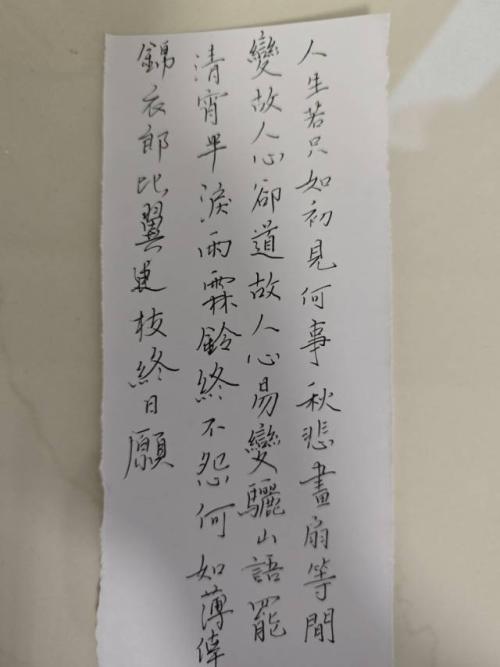 人生若只如初見何事秋悲畫扇等間
變故人心卻道故人心易變驪山語罷
清宵半淚雨霖鈴終不怨何如薄倖
錦衣郎比翼連枝終日願